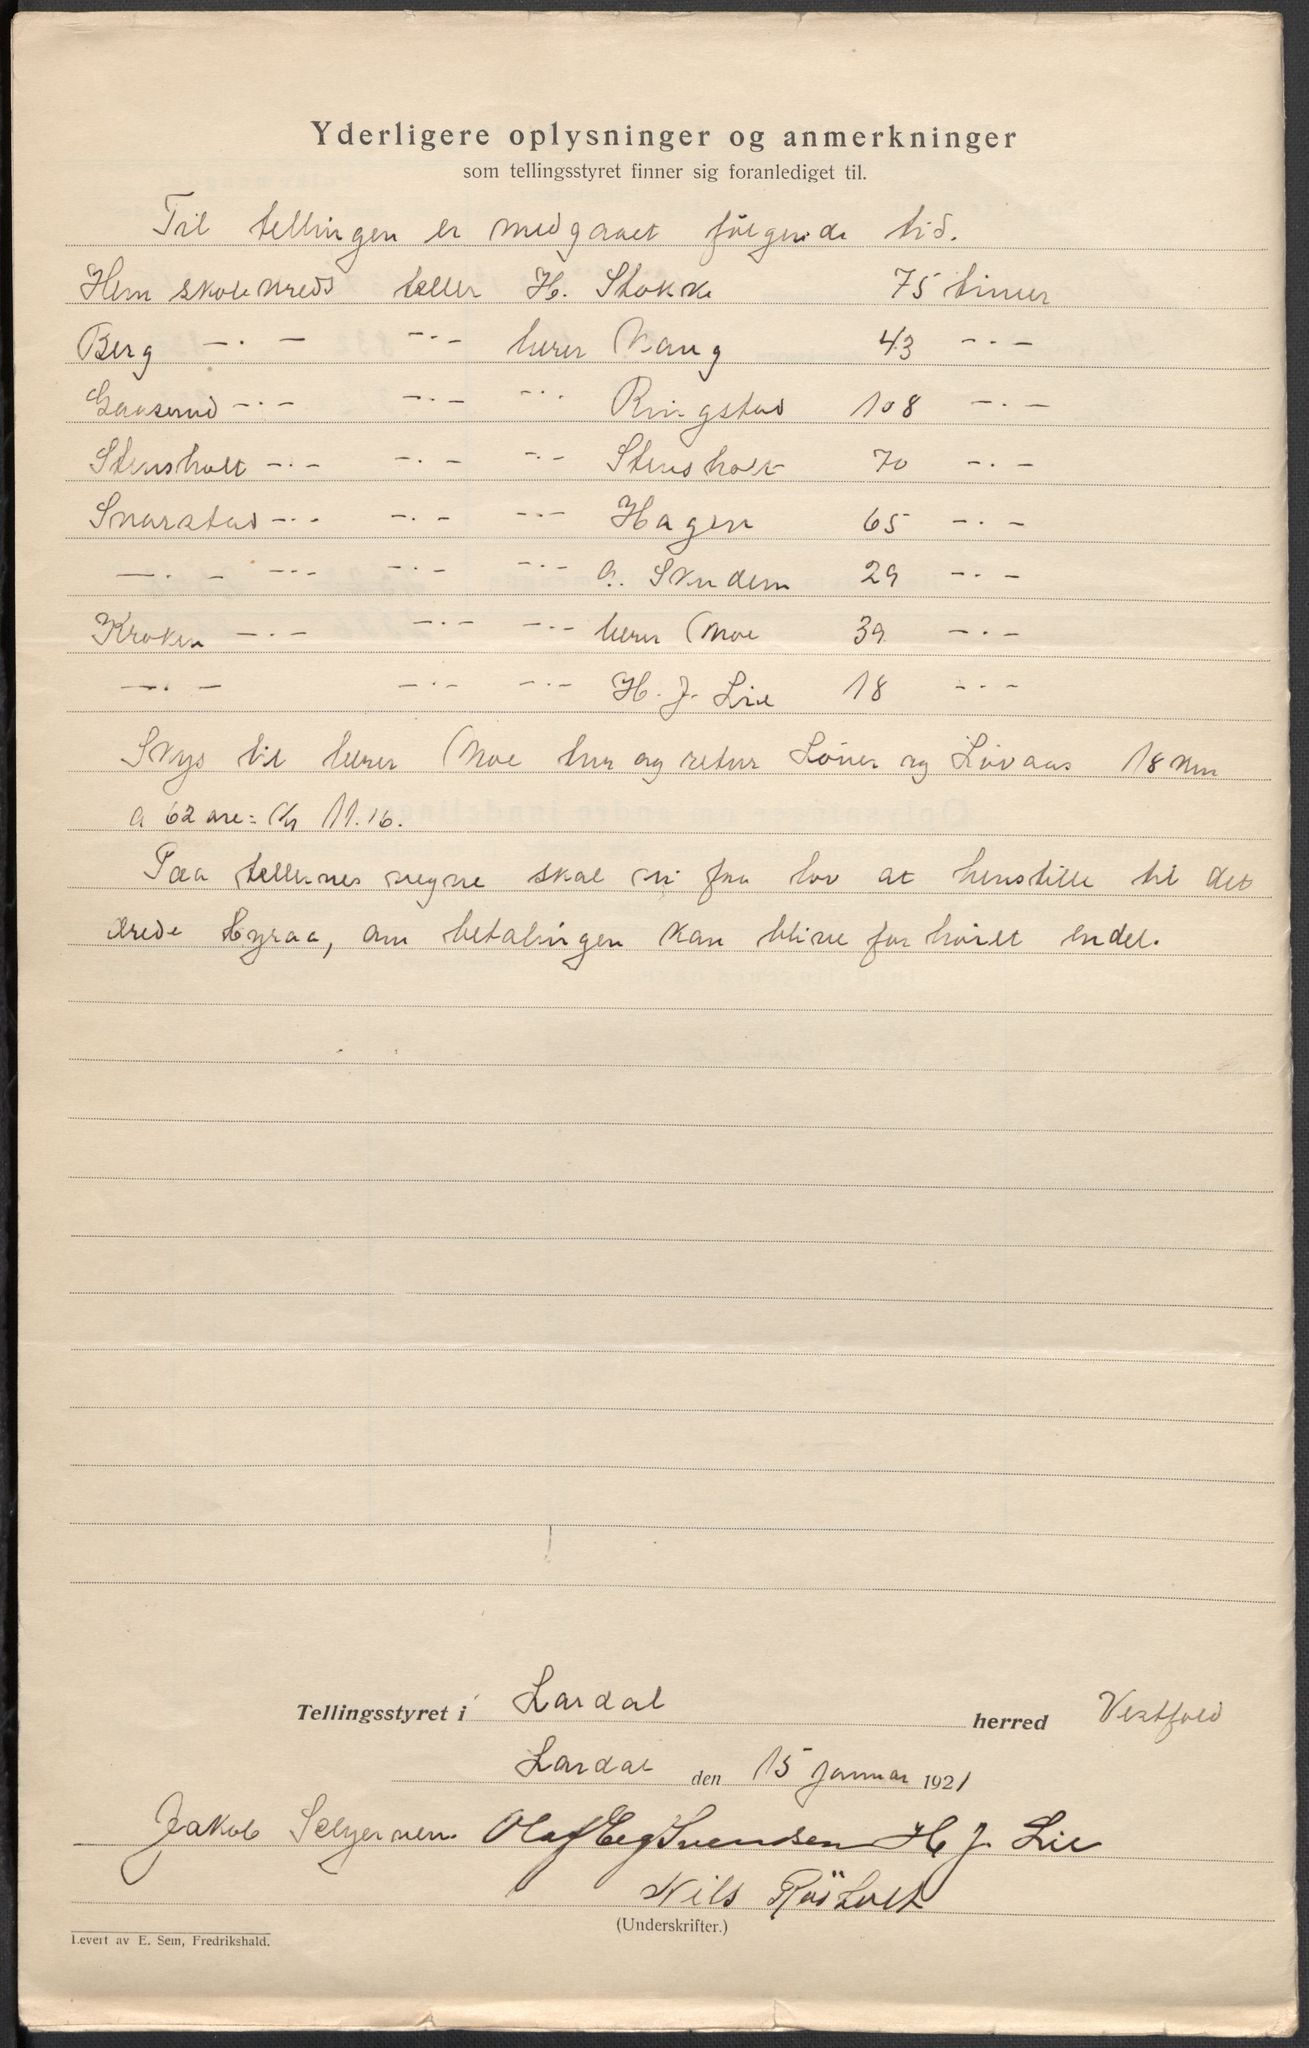 Yderligere oplysninger og anmerkninger
som tellingsstyret finner sig foranlediget til.
Til tellingen er medgaaet følgende tid.
Hem skolekreds tæller H. Stokke 75 timer
Berg -"- -"- lærer Vang 43 -"-
Gaaserud -"- -"- -"- Ringstad 108 -"-
Stensholt -"- -"- -"- Stensholt 70 -"-
Snarstad -"- -"- -"- Hagen 65 -"-
-"- -"- -"- -"- 29 -"-
Kroken -"- -"- -"- lærer Moe 39 -"-
-"- -"- -"- H. J. Lie 18 -"-
Skys til lærer Moe tur og retur og Løvaas 18 km
a 62 øre = Kr 11.16.
Paa tællernes vegne skal vi faa lov at henstille til det
ærede Byraa, om betalingen kan blive forhöiet endel.
Tellingsstyret i Lardal herred Vestfold
Lardal den 15 januar 1921
Jakob Olaf Eeg Svendsen H J. Lie
Nils Rösholt
(Underskrifter.)
Levert av E. Sem, Fredrikshald.